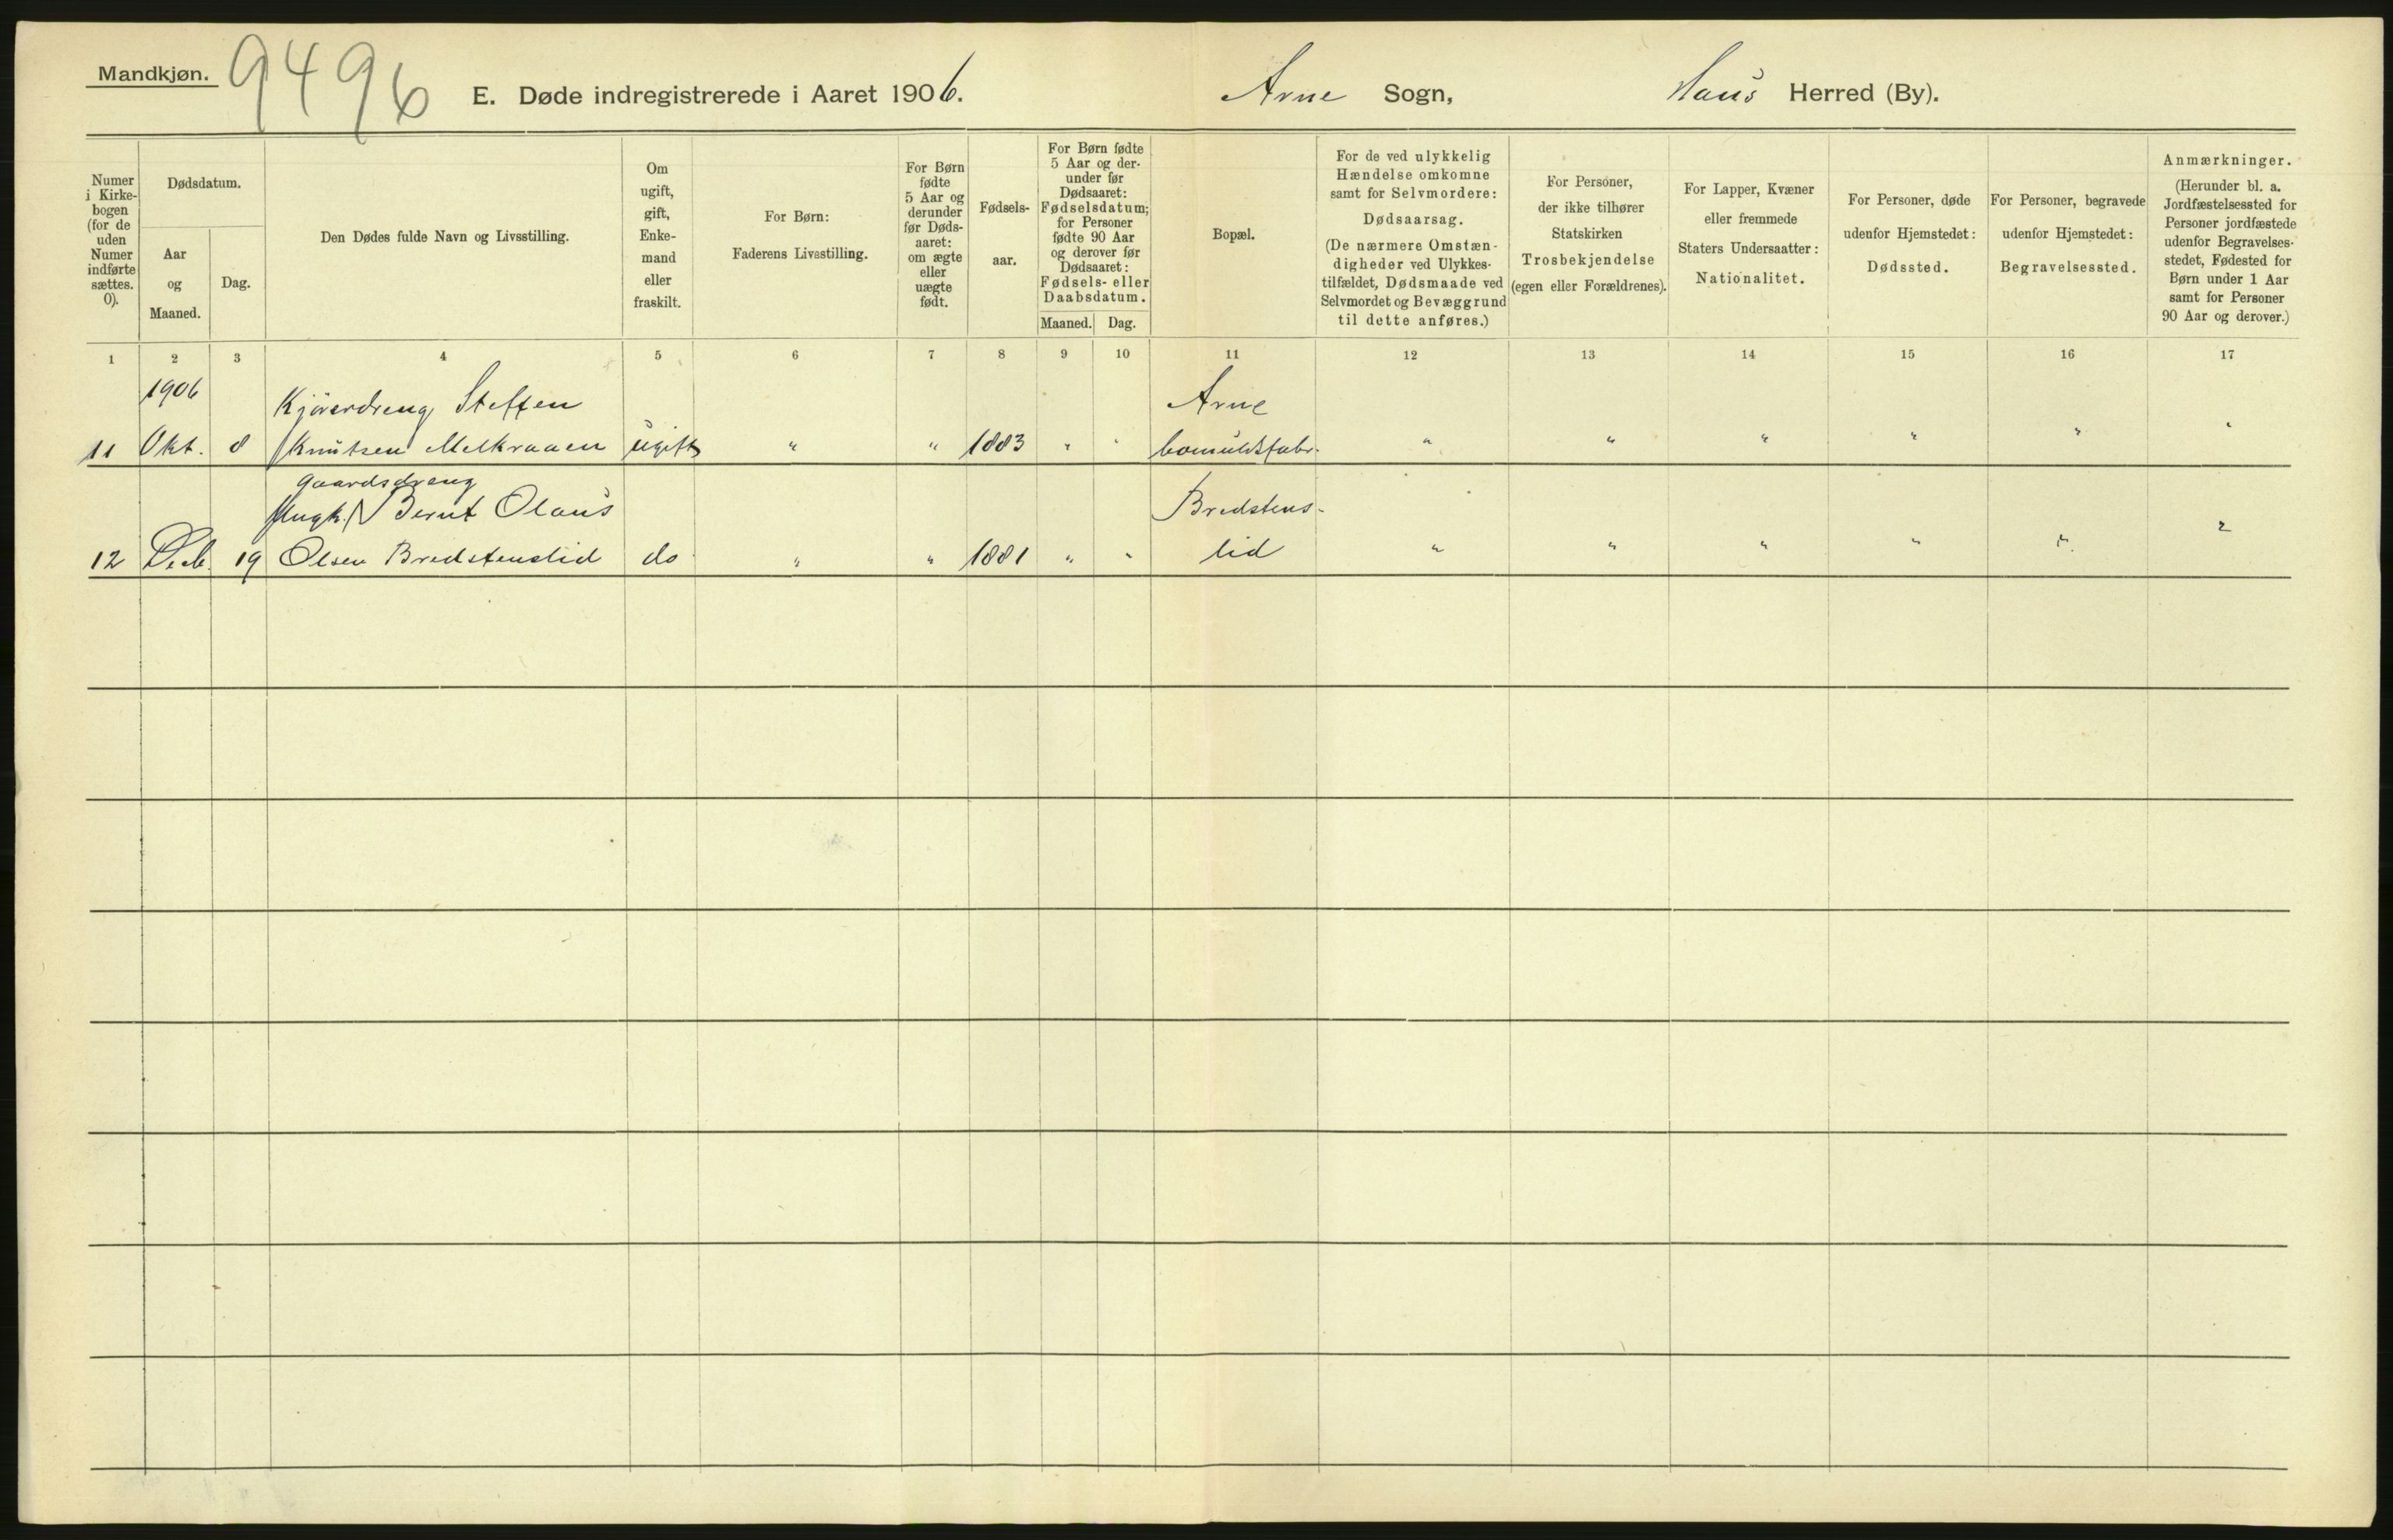 Mandkjøn.
9496
E. Døde indregistrerede i Aaret 1906. Arne Sogn, Haus Herred (By).
Numer
i Kirke-
bogen
(for de
uden
Numer
indførte
sættes.
0).
Dødsdatum.
Aar
og
Maaned.
Dag.
Den Dødes fulde Navn og Livsstilling.
Om
ugift,
gift,
Enke-
mand
eller
fraskilt.
For Børn:
Faderens Livsstilling.
For Børn
fødte
5 Aar og
derunder
før Døds-
aaret:
om ægte
eller
uægte
født.
Fødsels-
aar.
For Børn fødte
5 Aar og der-
under før
Dødsaaret:
Fødselsdatum;
for Personer
fødte 90 Aar
og derover før
Dødsaaret:
Fødsels- eller
Daabsdatum.
Maaned. Dag.
Bopæl.
For de ved ulykkelig
Hændelse omkomne
samt for Selvmordere:
Dødsaarsag.
(De nærmere Omstæn-
digheder ved Ulykkes-
tilfældet, Dødsmaade ved
Selvmordet og Bevæggrund
til dette anføres.)
For Personer,
der ikke tilhører
Statskirken
Trosbekjendelse
(egen eller Forældrenes).
For Lapper, Kvæner
eller fremmede
Staters Undersaatter:
Nationalitet.
For Personer, døde
udenfor Hjemstedet:
Dødssted.
For Personer, begravede
udenfor Hjemstedet:
Begravelsessted.
Anmærkninger.
(Herunder bl. a.
Jordfæstelsessted for
Personer jordfæstede
udenfor Begravelses-
stedet, Fødested for
Børn under 1 Aar
samt for Personer
90 Aar og derover.)
1 2 3 4 5 6 7 8 9 10 11 12 13 14 15 16 17
1906 Kjøredreng Steffen Arne
11 Okt. 8 Knutsen Melkraaen ugift " " 1883 " " bomuldsfabr. " " " " " "
Gaardsdreng
Ungk. Bernt Olaus Bredstens-
12 Decb. 19 Olsen Bredstenslid do " " 1881 " " lid " " " " " "